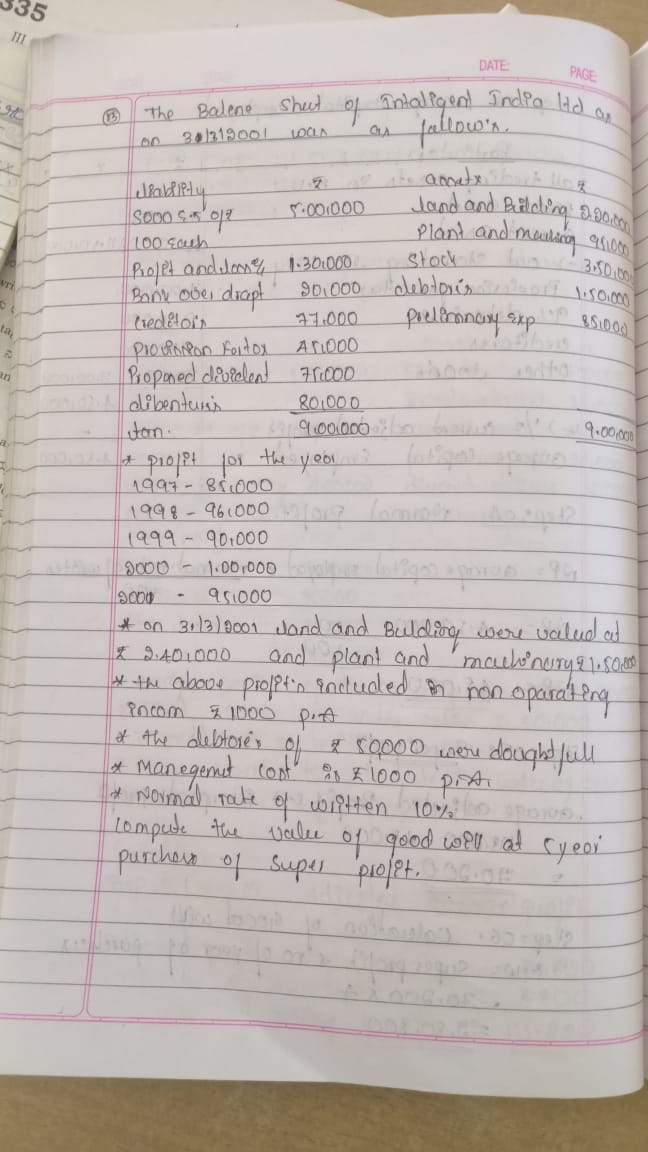 335
III
DATE: PAGE:
13 The Balene Sheet of Intaligent India ltd as
on 31/3/2001 was as fallow's.
Liability ₹ assets ₹
5000 E.S of ₹ 5,00,000 Land and Building 2,20,000
100 each Plant and 95,000
Profit and loss 1,30,000 Stock 3,50,000
Bank over drapt 20,000 debtor's 1,50,000
creditors 77,000 Prelimonary Exp 85,000
Provintion For tax 45,000
Proposed divedent 75,000
dibentures 80,000
9,00,000 9,00,000
* Profit for the year
1997 - 85,000
1998 - 96,000
1999 - 90,000
2000 - 1,00,000
2001 - 95,000
* on 31/3/2001 Land and Building were valued at
₹ 2,40,000 and plant and machinory ₹ 1,50,000
* the above profit's included in non oparating
incom ₹ 1000 P.A
* the debtore's of ₹ 50,000 were doughtfull
* Manegemet cost is ₹ 1000 P.A.
* Normal rate of written 10%
compute the value of good will at 5 year
purchase of super profit.